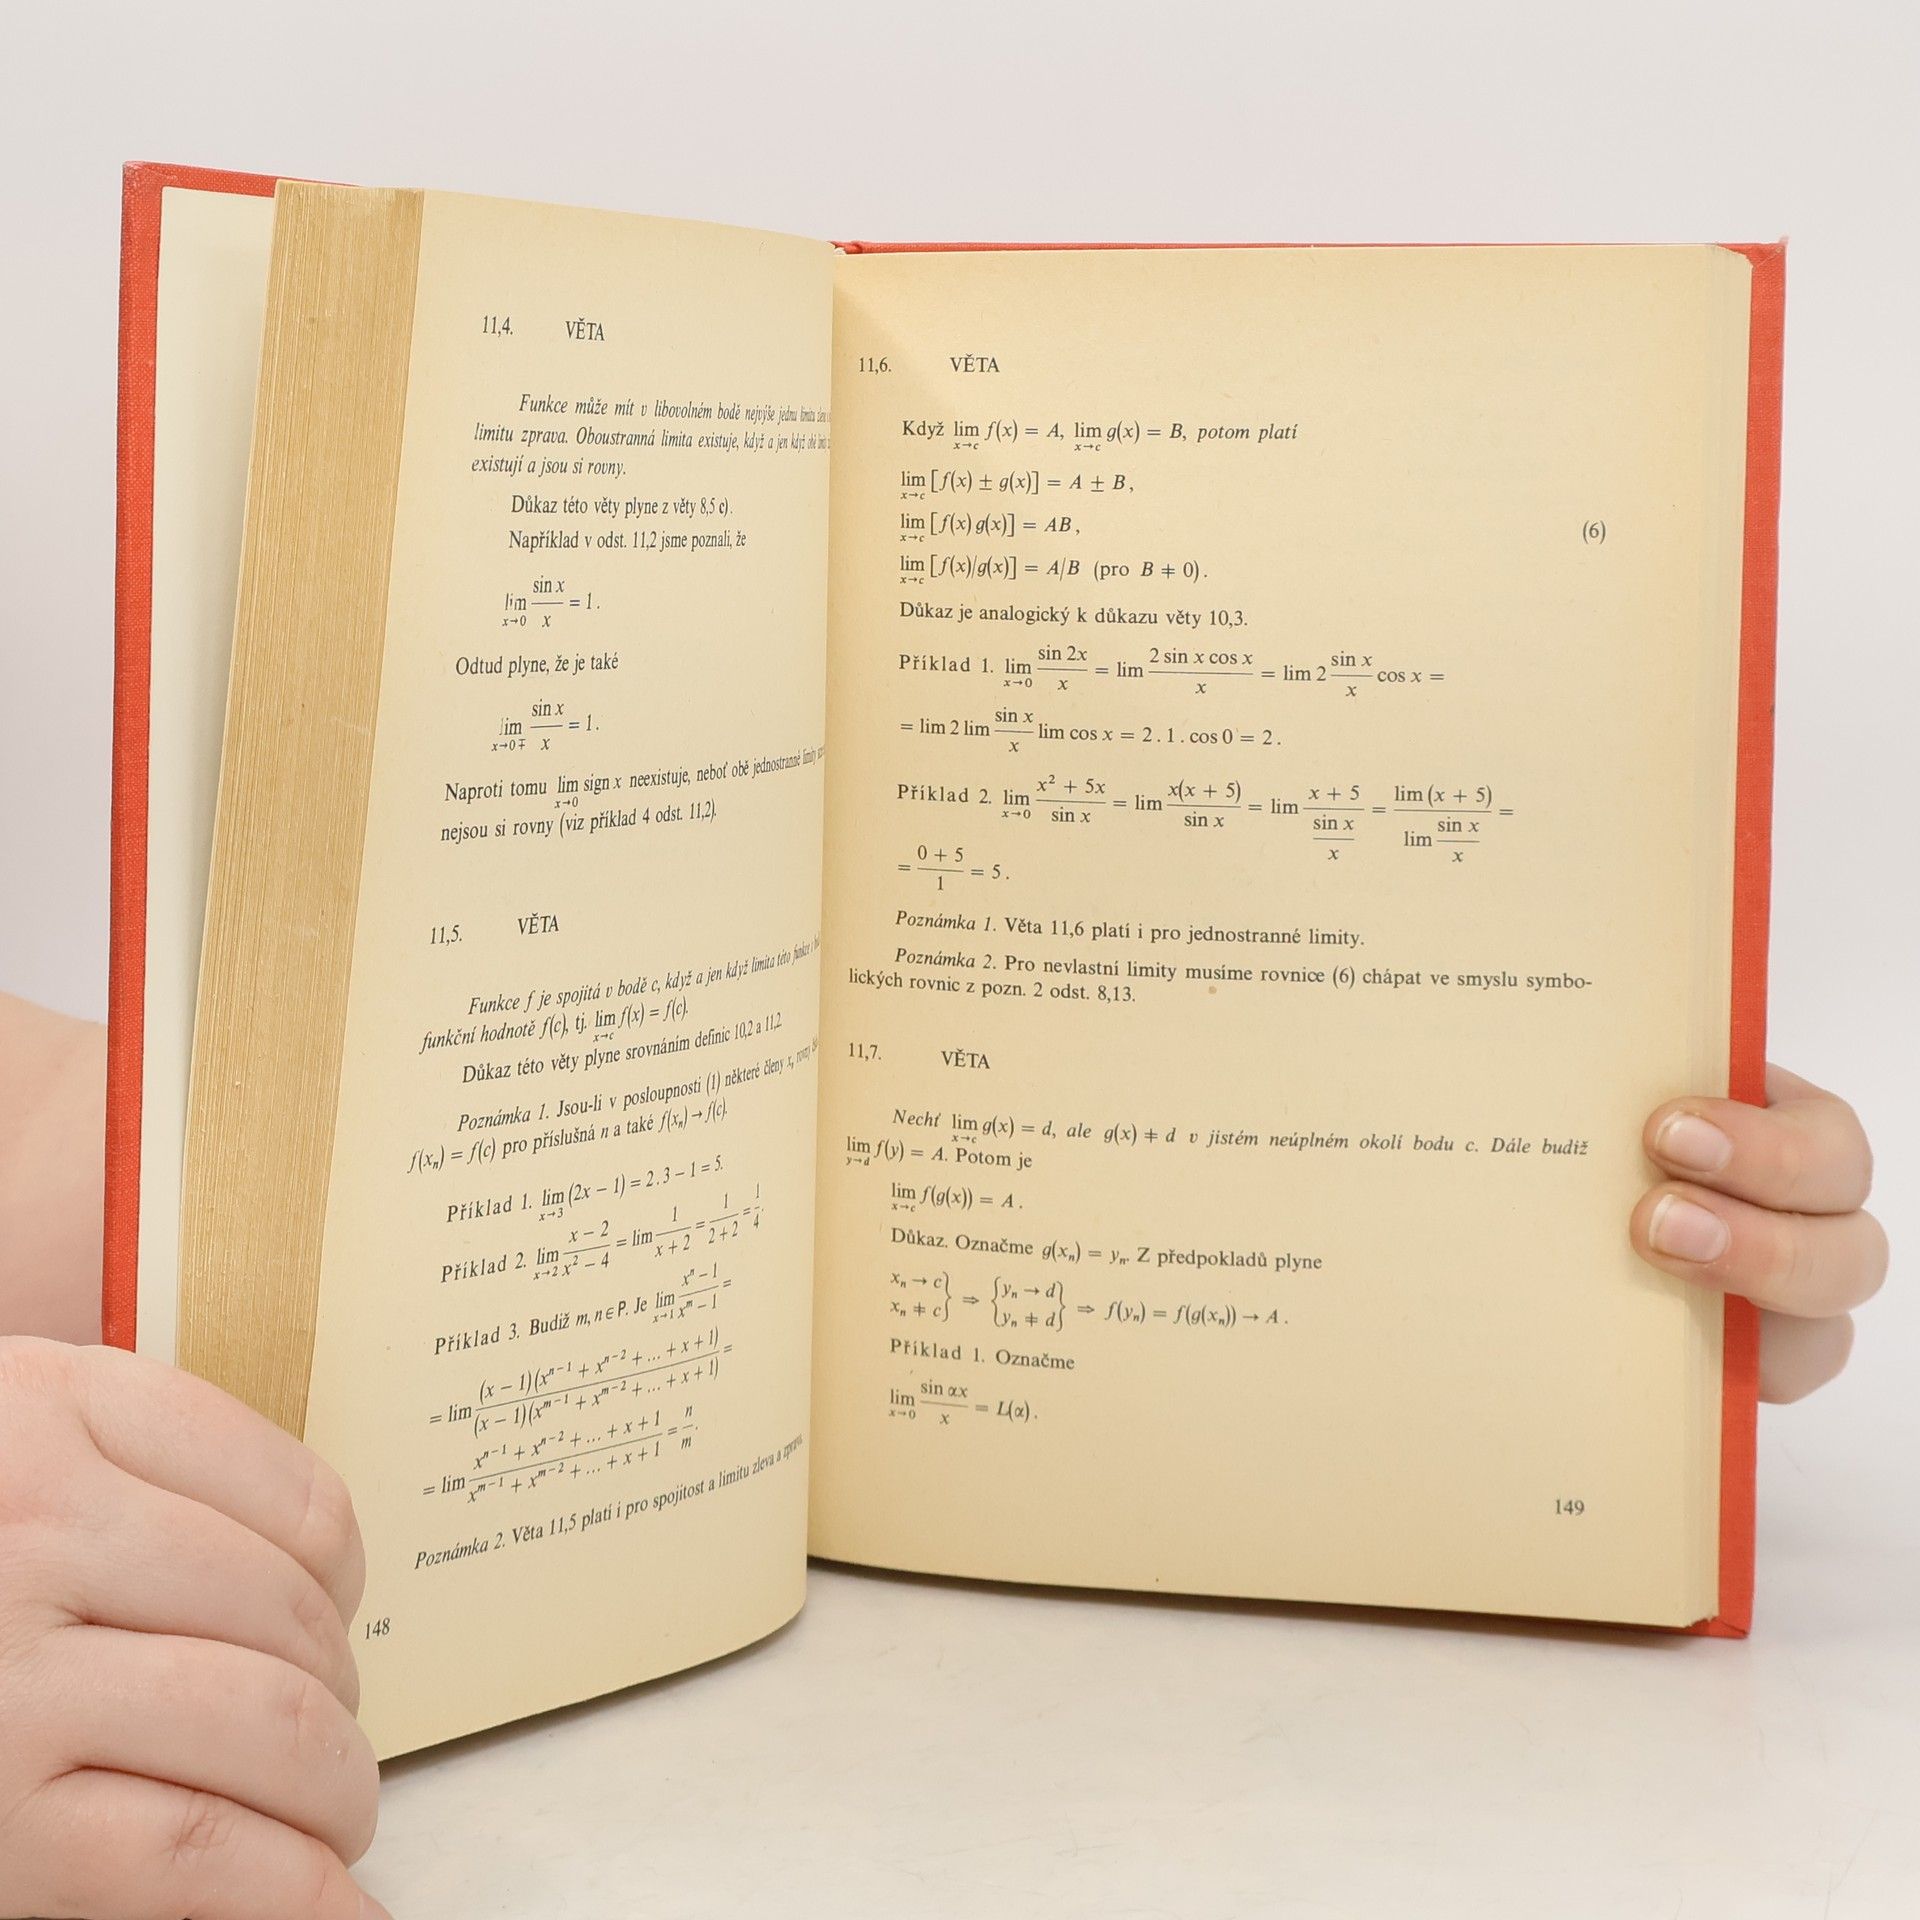 11,4. VĚTA
Funkce může mít v libovolném bodě nejvýše jednu limitu
limitu zprava. Oboustranná limita existuje, když a jen když obě
existují a jsou si rovny.
Důkaz této věty plyne z věty 8,5 c).
Například v odst. 11,2 jsme poznali, že
lim_{x→0} sin x / x = 1.
Odtud plyne, že je také
lim_{x→0∓} sin x / x = 1.
Naproti tomu lim_{x→0} sign x neexistuje, neboť obě jednostranné limity
nejsou si rovny (viz příklad 4 odst. 11,2).
11,5. VĚTA
Funkce f je spojitá v bodě c, když a jen když limita této funkce
funkční hodnotě f(c), tj. lim_{x→c} f(x) = f(c).
Důkaz této věty plyne srovnáním definic 10,2 a 11,2.
Poznámka 1. Jsou-li v posloupnosti (1) některé členy xₙ rovny
f(xₙ) = f(c) pro příslušná n a také f(xₙ) → f(c).
Příklad 1. lim_{x→3} (2x − 1) = 2.3 − 1 = 5.
Příklad 2. lim_{x→2} (x − 2)/(x² − 4) = lim 1/(x + 2) = 1/(2 + 2) = 1/4.
Příklad 3. Budiž m, n ∈ P. Je lim_{x→1} (xⁿ − 1)/(xᵐ − 1) =
= lim (x − 1)(xⁿ⁻¹ + xⁿ⁻² + ... + x + 1)/(x − 1)(xᵐ⁻¹ + xᵐ⁻² + ... + x + 1) =
= lim (xⁿ⁻¹ + xⁿ⁻² + ... + x + 1)/(xᵐ⁻¹ + xᵐ⁻² + ... + x + 1) = n/m.
Poznámka 2. Věta 11,5 platí i pro spojitost a limitu zleva a zprava.
148
11,6. VĚTA
Když lim_{x→c} f(x) = A, lim_{x→c} g(x) = B, potom platí
lim_{x→c} [f(x) ± g(x)] = A ± B,
lim_{x→c} [f(x) g(x)] = AB, (6)
lim_{x→c} [f(x)/g(x)] = A/B (pro B ≠ 0).
Důkaz je analogický k důkazu věty 10,3.
Příklad 1. lim_{x→0} sin 2x / x = lim 2 sin x cos x / x = lim 2 sin x / x cos x =
= lim 2 lim sin x / x lim cos x = 2 . 1 . cos 0 = 2.
Příklad 2. lim_{x→0} (x² + 5x)/sin x = lim x(x + 5)/sin x = lim (x + 5)/(sin x / x) = lim (x + 5)/(lim sin x / x) =
= (0 + 5)/1 = 5.
Poznámka 1. Věta 11,6 platí i pro jednostranné limity.
Poznámka 2. Pro nevlastní limity musíme rovnice (6) chápat ve smyslu symbo-
lických rovnic z pozn. 2 odst. 8,13.
11,7. VĚTA
Nechť lim_{x→c} g(x) = d, ale g(x) ≠ d v jistém neúplném okolí bodu c. Dále budiž
lim_{y→d} f(y) = A. Potom je
lim_{x→c} f(g(x)) = A.
Důkaz. Označme g(xₙ) = yₙ. Z předpokladů plyne
xₙ → c, xₙ ≠ c} ⇒ {yₙ → d, yₙ ≠ d} ⇒ f(yₙ) = f(g(xₙ)) → A.
Příklad 1. Označme
lim_{x→0} sin αx / x = L(α).
149